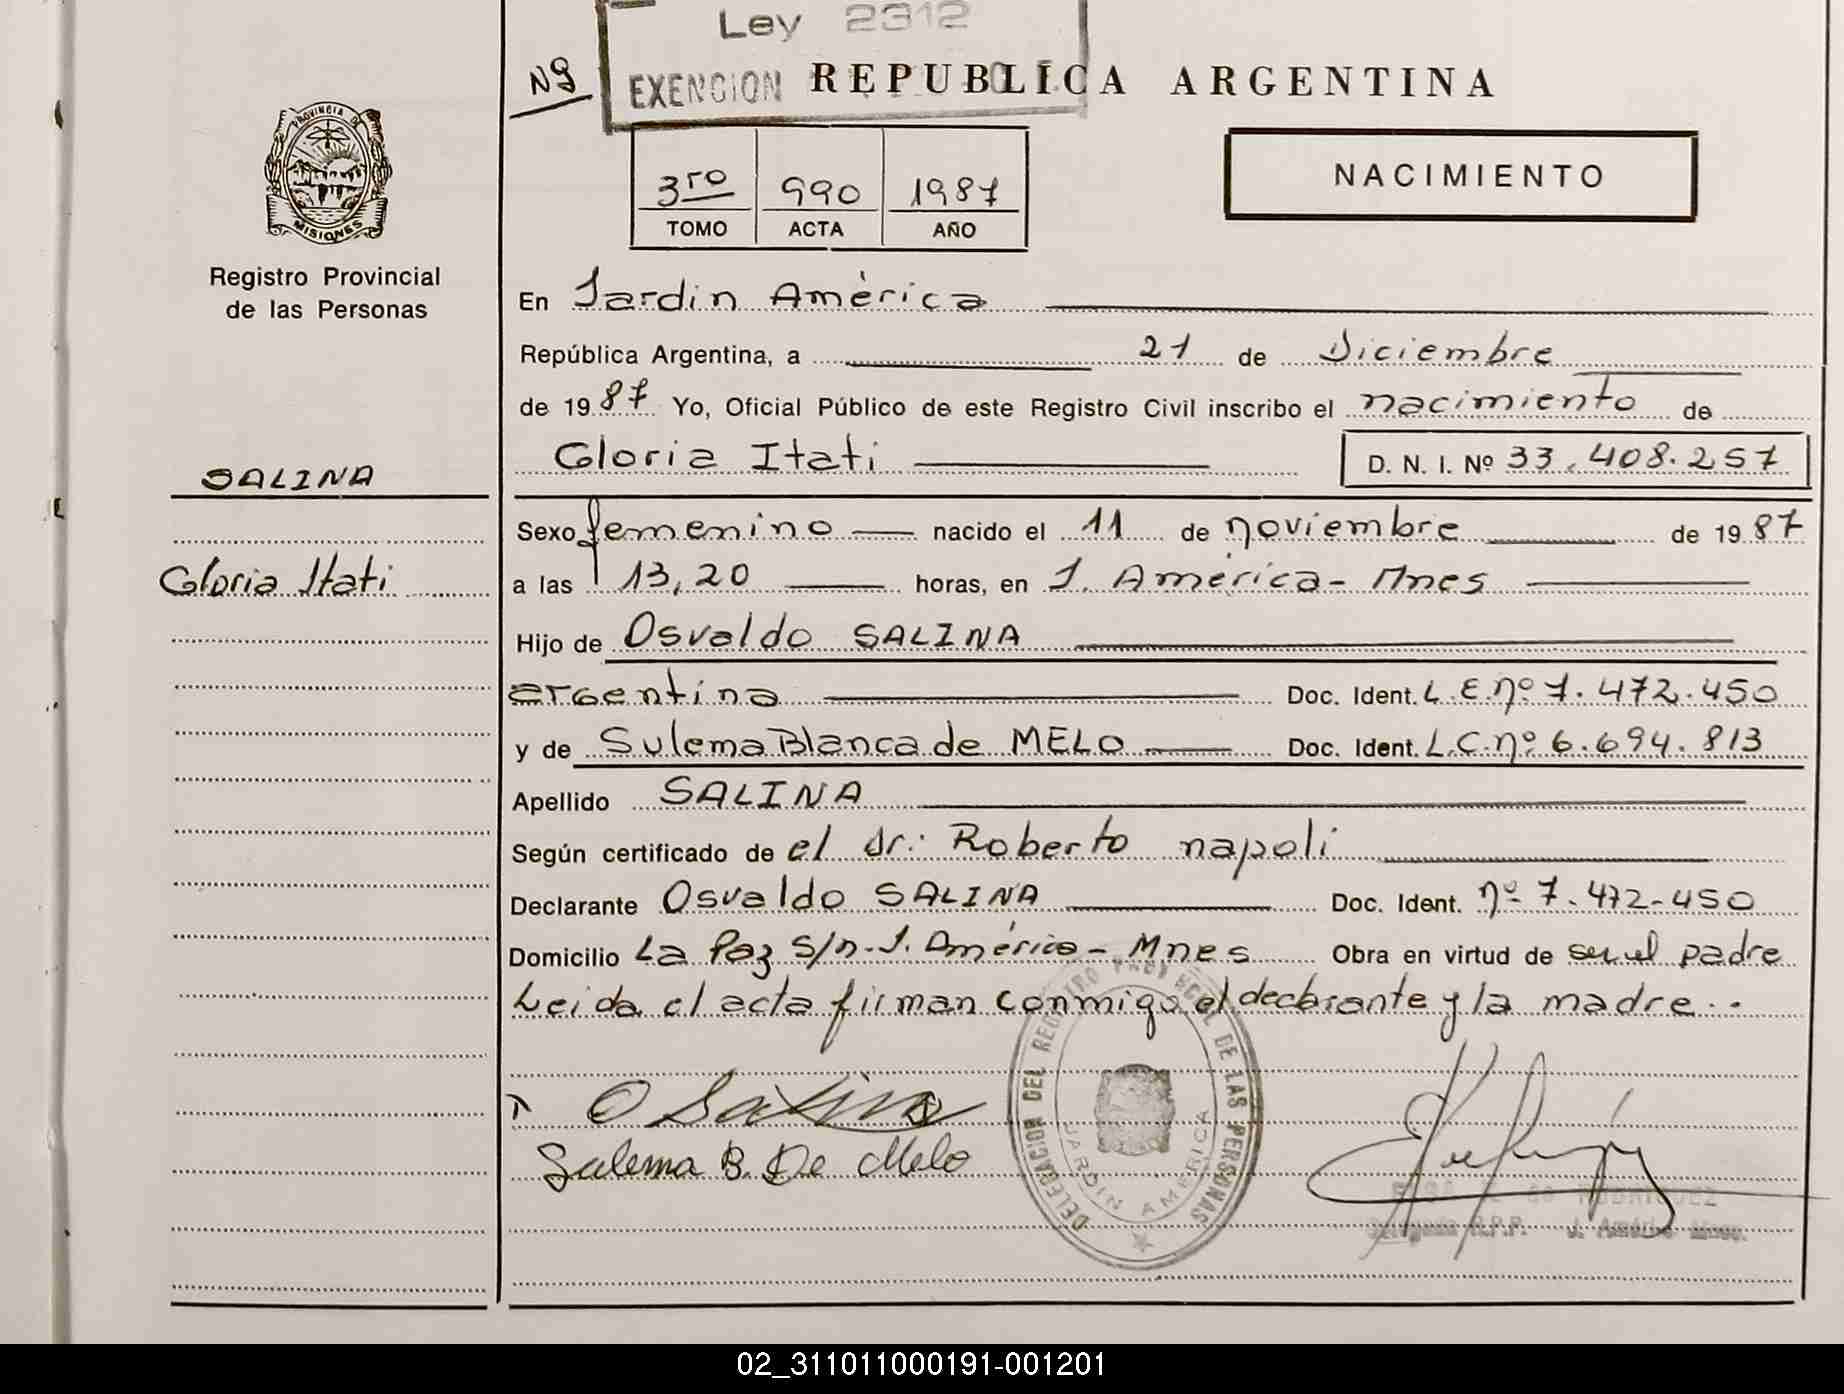 Ley 2312
Nº
EXENCION
REPUBLICA ARGENTINA
3ro 990 1987
TOMO ACTA AÑO
NACIMIENTO
PROVINCIA DE
MISIONES
Registro Provincial
de las Personas
En Jardin América
República Argentina, a 21 de Diciembre
de 1987 Yo, Oficial Público de este Registro Civil inscribo el nacimiento de
Gloria Itati D. N. I. Nº 33.408.257
SALINA
Gloria Itati
Sexo femenino nacido el 11 de noviembre de 1987
a las 13,20 horas, en J. América - Mnes
Hijo de Osvaldo SALINA
argentina Doc. Ident. L.E. nº 7.472.450
y de Sulema Blanca de MELO Doc. Ident. L.C. nº 6.694.813
Apellido SALINA
Según certificado de el dr: Roberto napoli
Declarante Osvaldo SALINA Doc. Ident. nº 7.472-450
Domicilio La Paz s/n - J. América - Mnes Obra en virtud de ser el padre
Leida el acta firman conmigo el declarante y la madre..
O Salina
Sulema B. De Melo
DELEGACION DEL REGISTRO PROVINCIAL DE LAS PERSONAS
JARDIN AMERICA
de RODRIGUEZ
Delegada R.P.P. J. América Mnes.
02_311011000191-001201